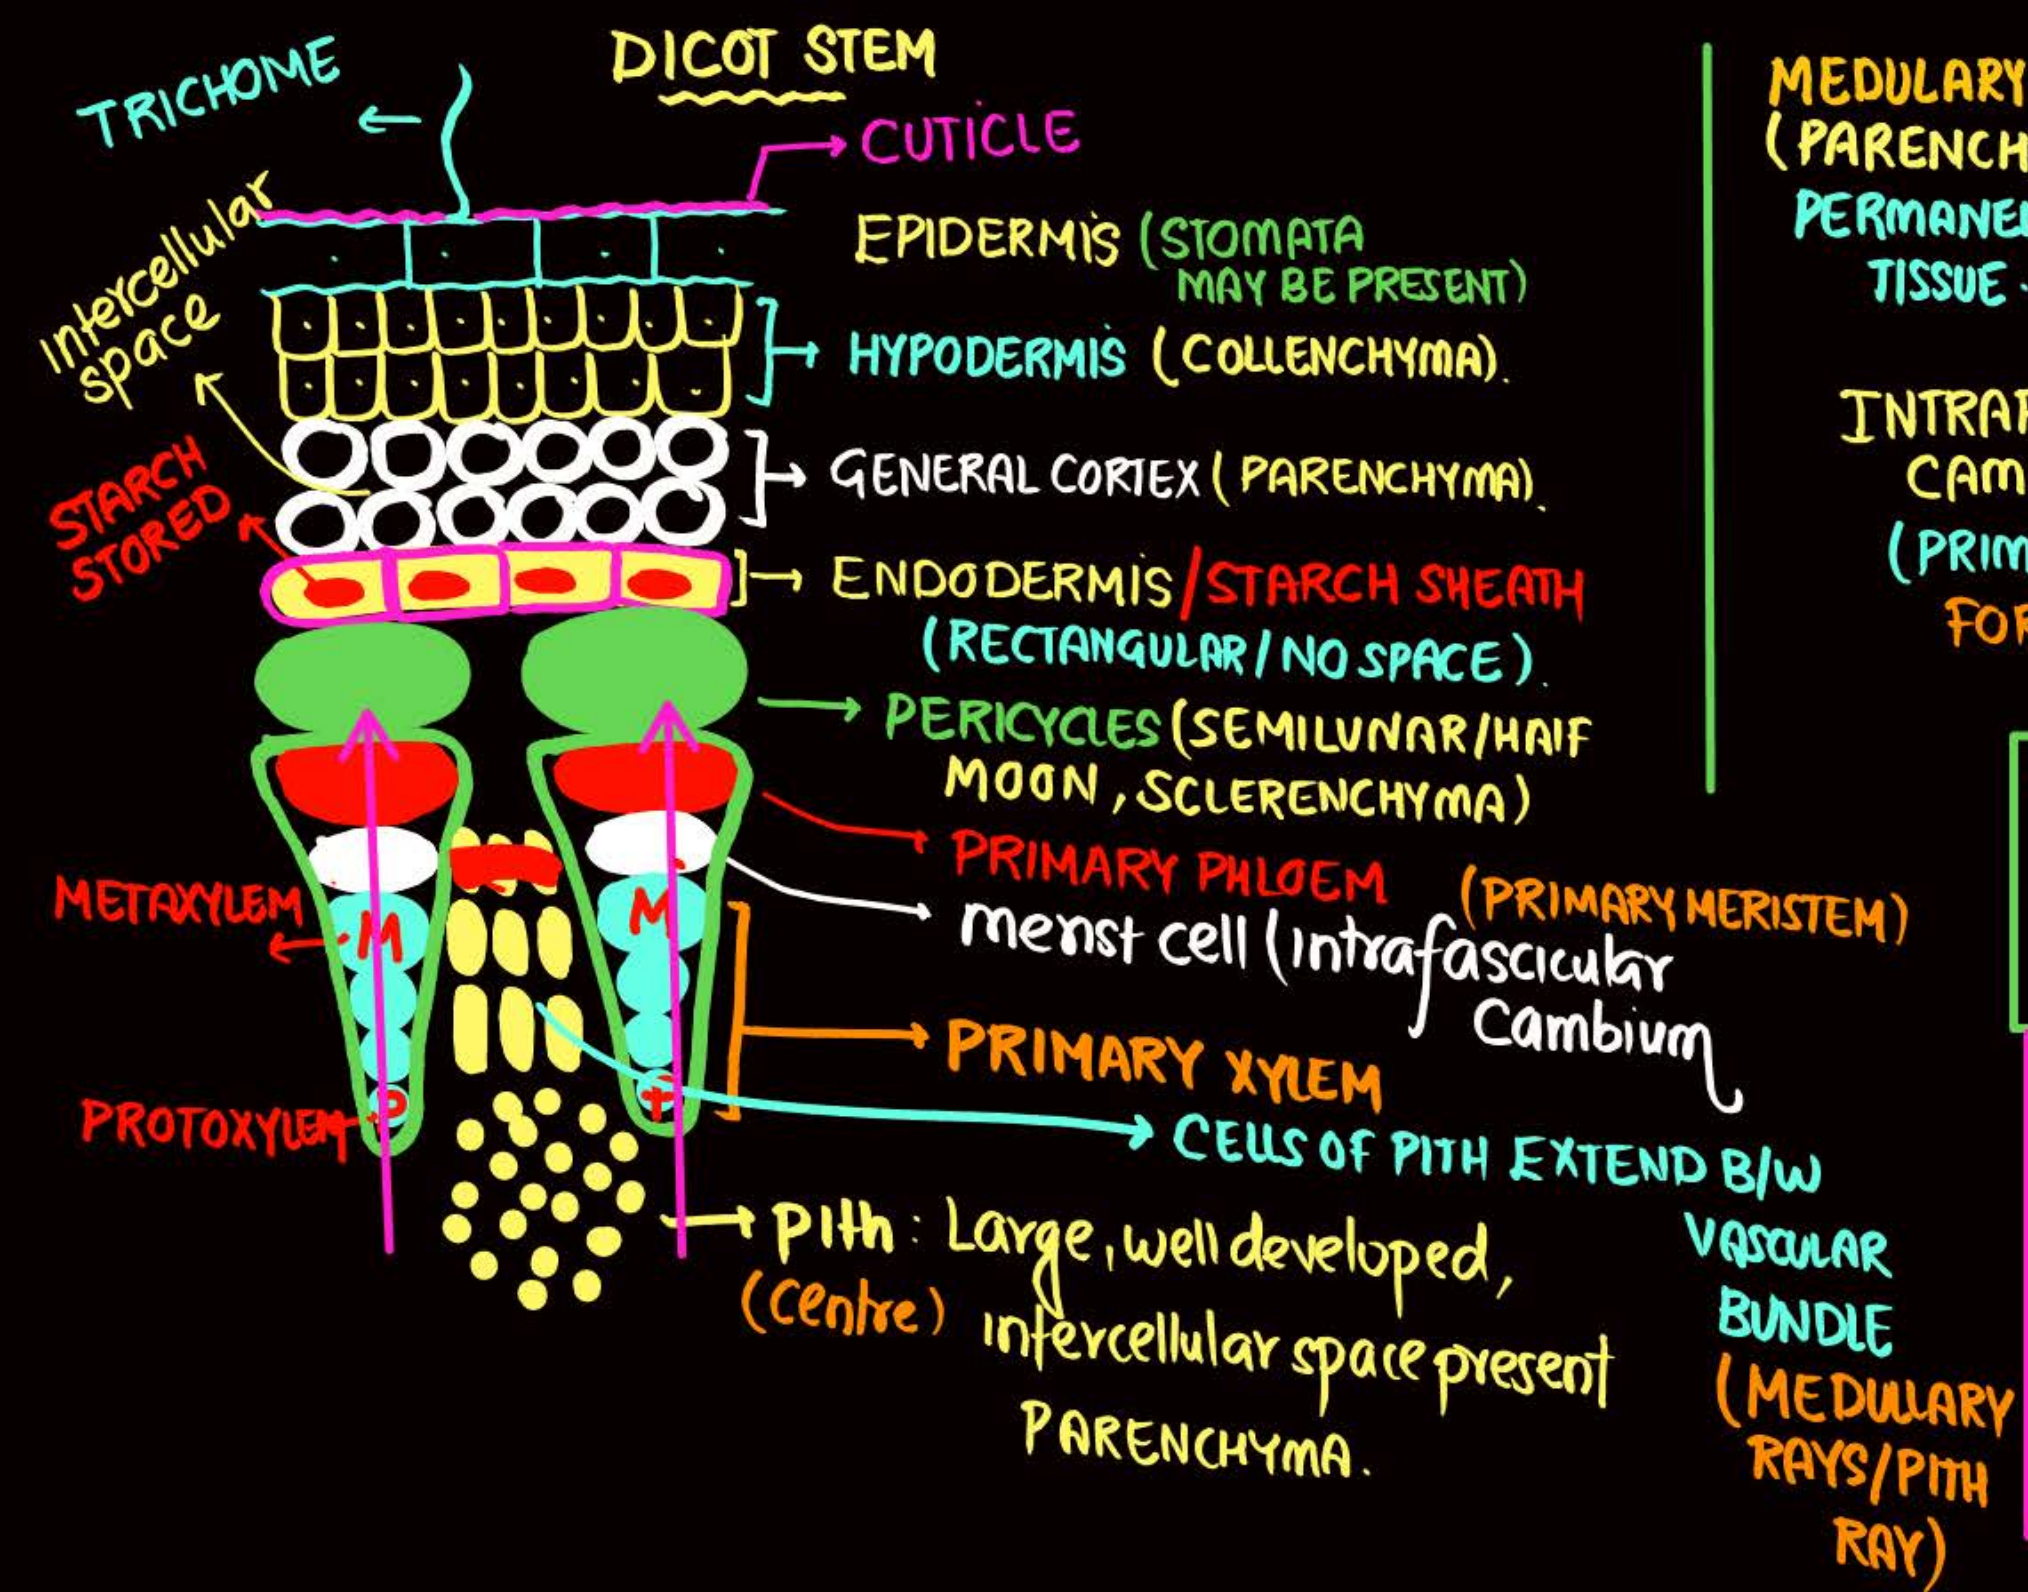 DICOT STEM
TRICHOME
CUTICLE
Intercellular
space
EPIDERMIS (STOMATA
MAY BE PRESENT)
HYPODERMIS (COLLENCHYMA).
GENERAL CORTEX (PARENCHYMA).
STARCH
STORED
ENDODERMIS/STARCH SHEATH
(RECTANGULAR/NO SPACE).
PERICYCLES (SEMILUNAR/HAIF
MOON, SCLERENCHYMA)
PRIMARY PHLOEM
(PRIMARY MERISTEM)
menst cell (Intrafascicular
Cambium
METAXYLEM
M
M
PRIMARY XYLEM
PROTOXYLEM
P
CELLS OF PITH EXTEND B/W
VASCULAR
BUNDLE
(MEDULLARY
RAYS/PITH
RAY)
Pith: Large, well developed,
(Centre)
intercellular space present
PARENCHYMA.
MEDULARY
(PARENCH
PERMANE
TISSUE
INTRA
CAM
(PRIM
FOR